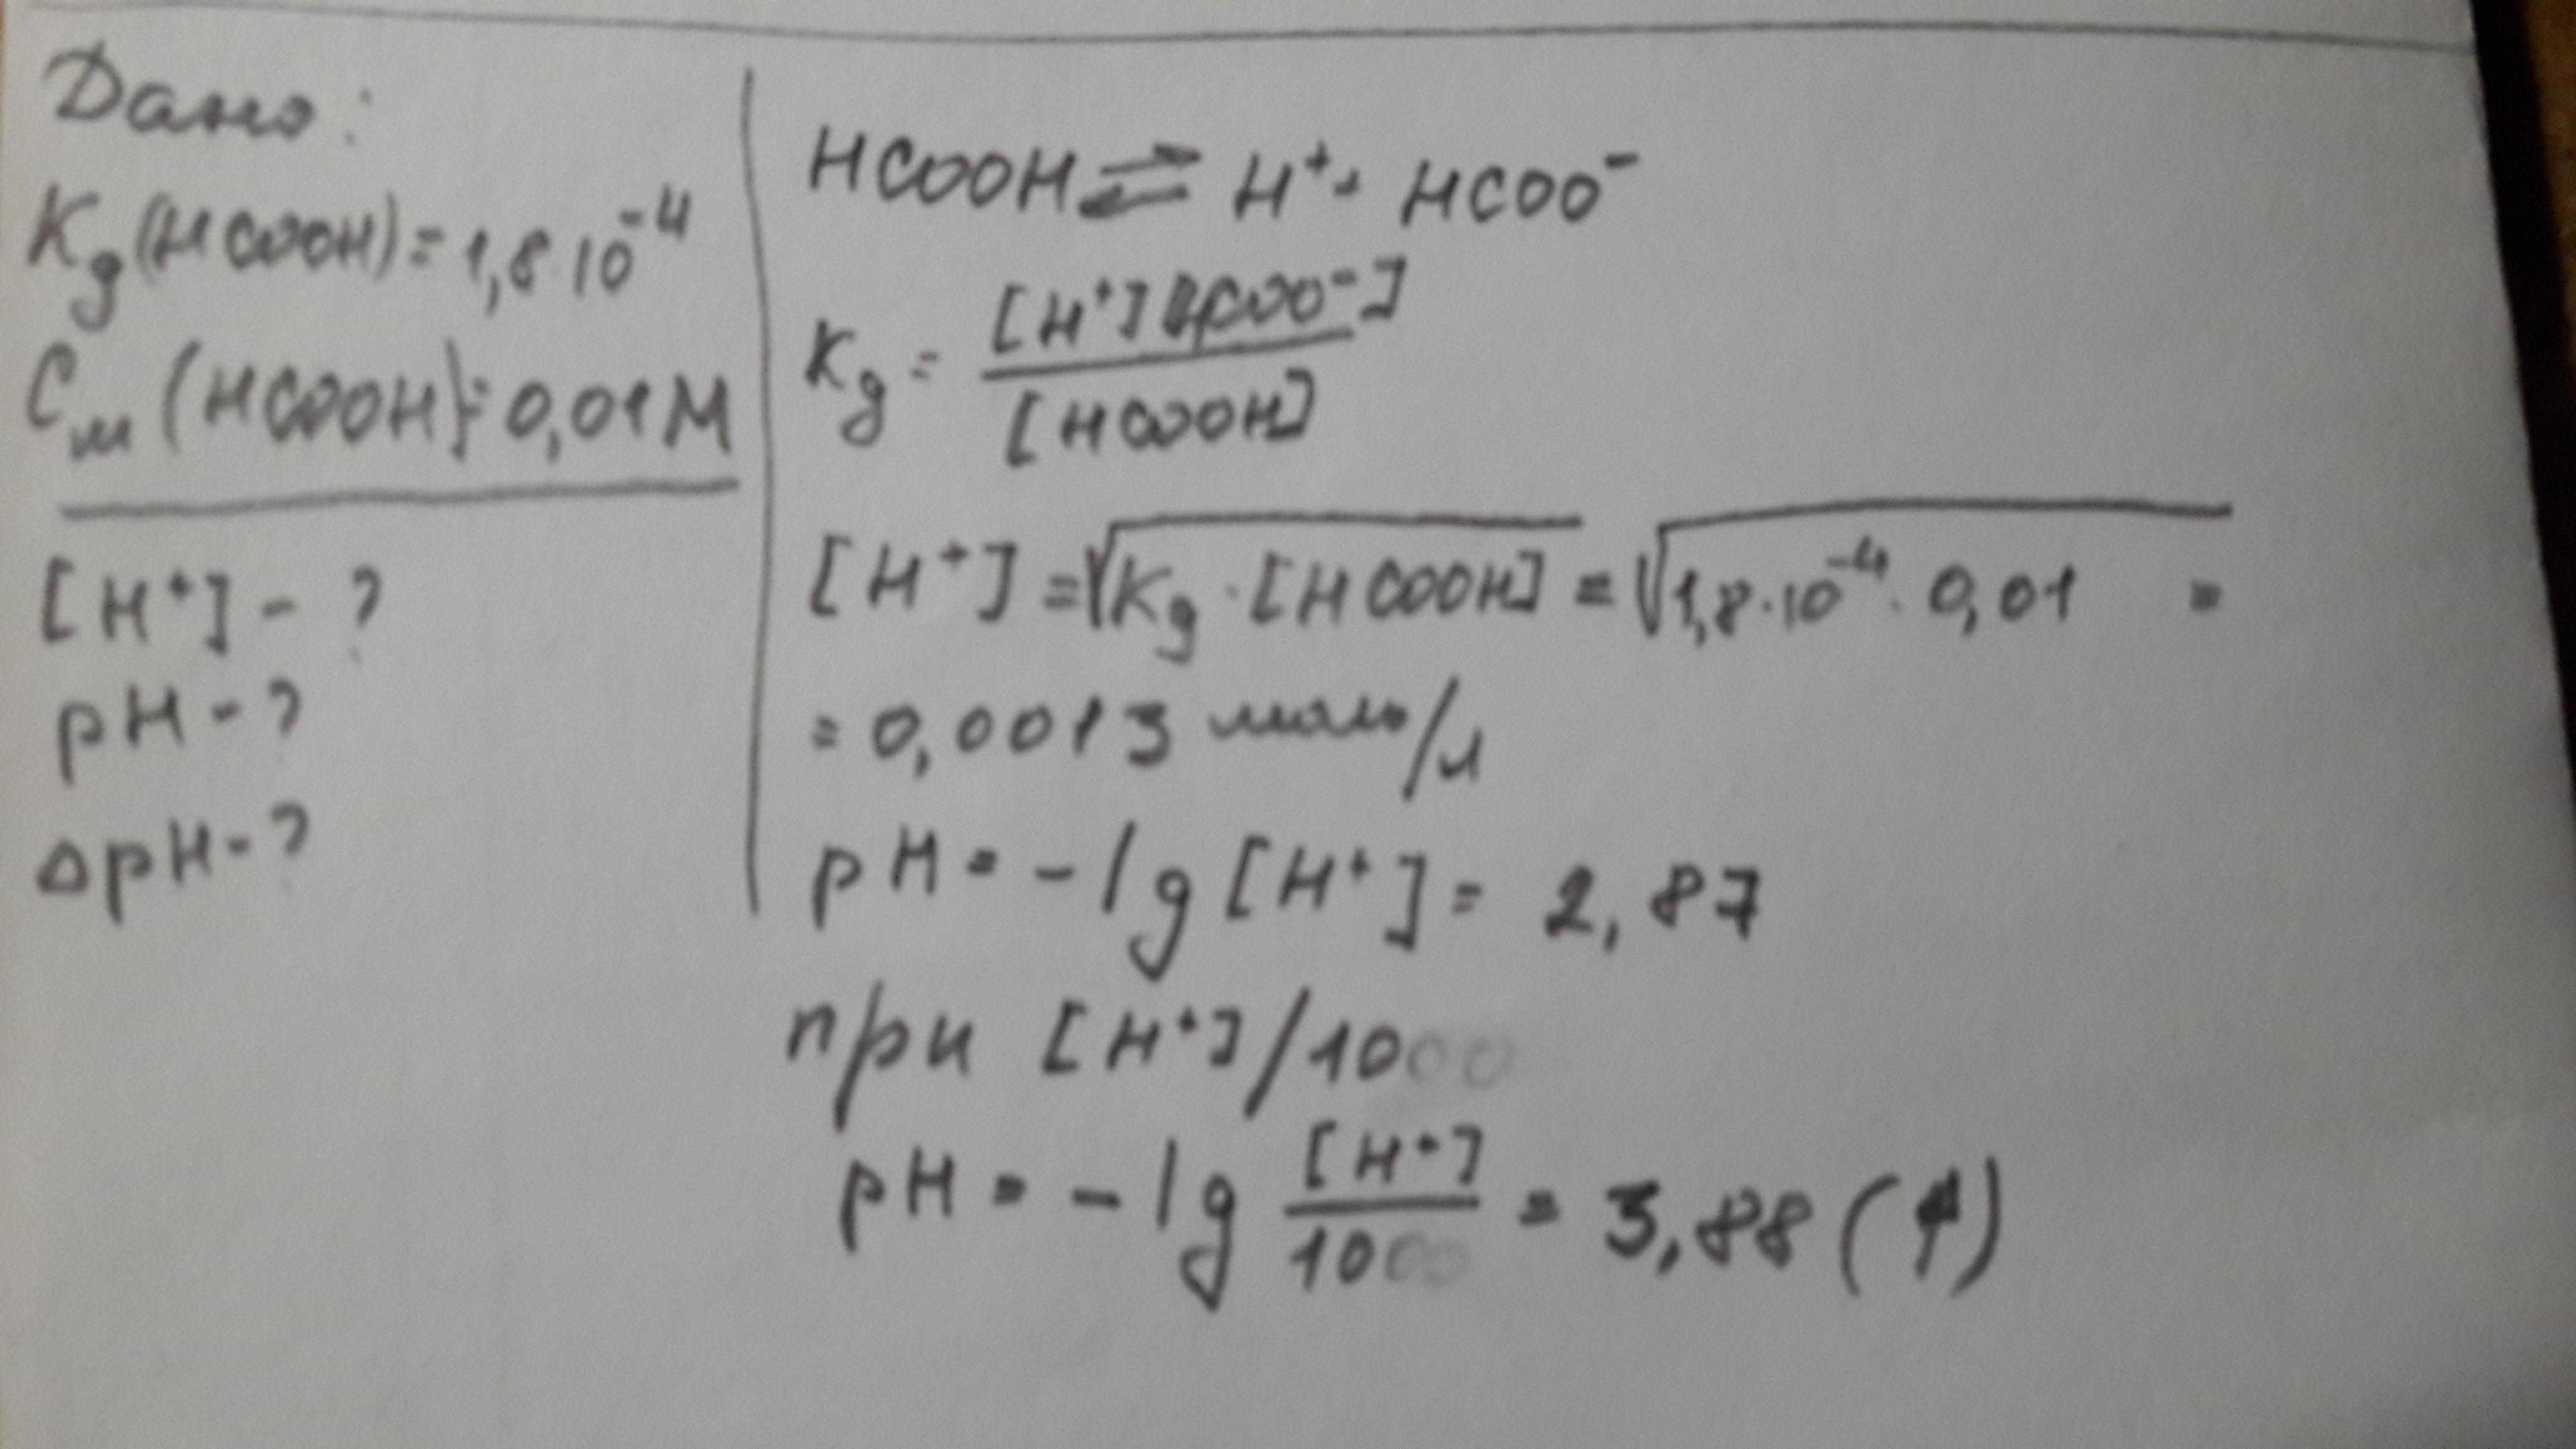 Дано:
Kg(HCOOH)=1,8·10⁻⁴
Cм(HCOOH)=0,01M
[H⁺] - ?
pH - ?
ΔpH - ?
HCOOH ⇌ H⁺ + HCOO⁻
Kg = [H⁺][HCOO⁻] / [HCOOH]
[H⁺] = √Kg·[HCOOH] = √1,8·10⁻⁴·0,01 =
= 0,0013 моль/л
pH = -lg[H⁺] = 2,87
при [H⁺]/10
pH = -lg [H⁺]/10 = 3,88 (↑)